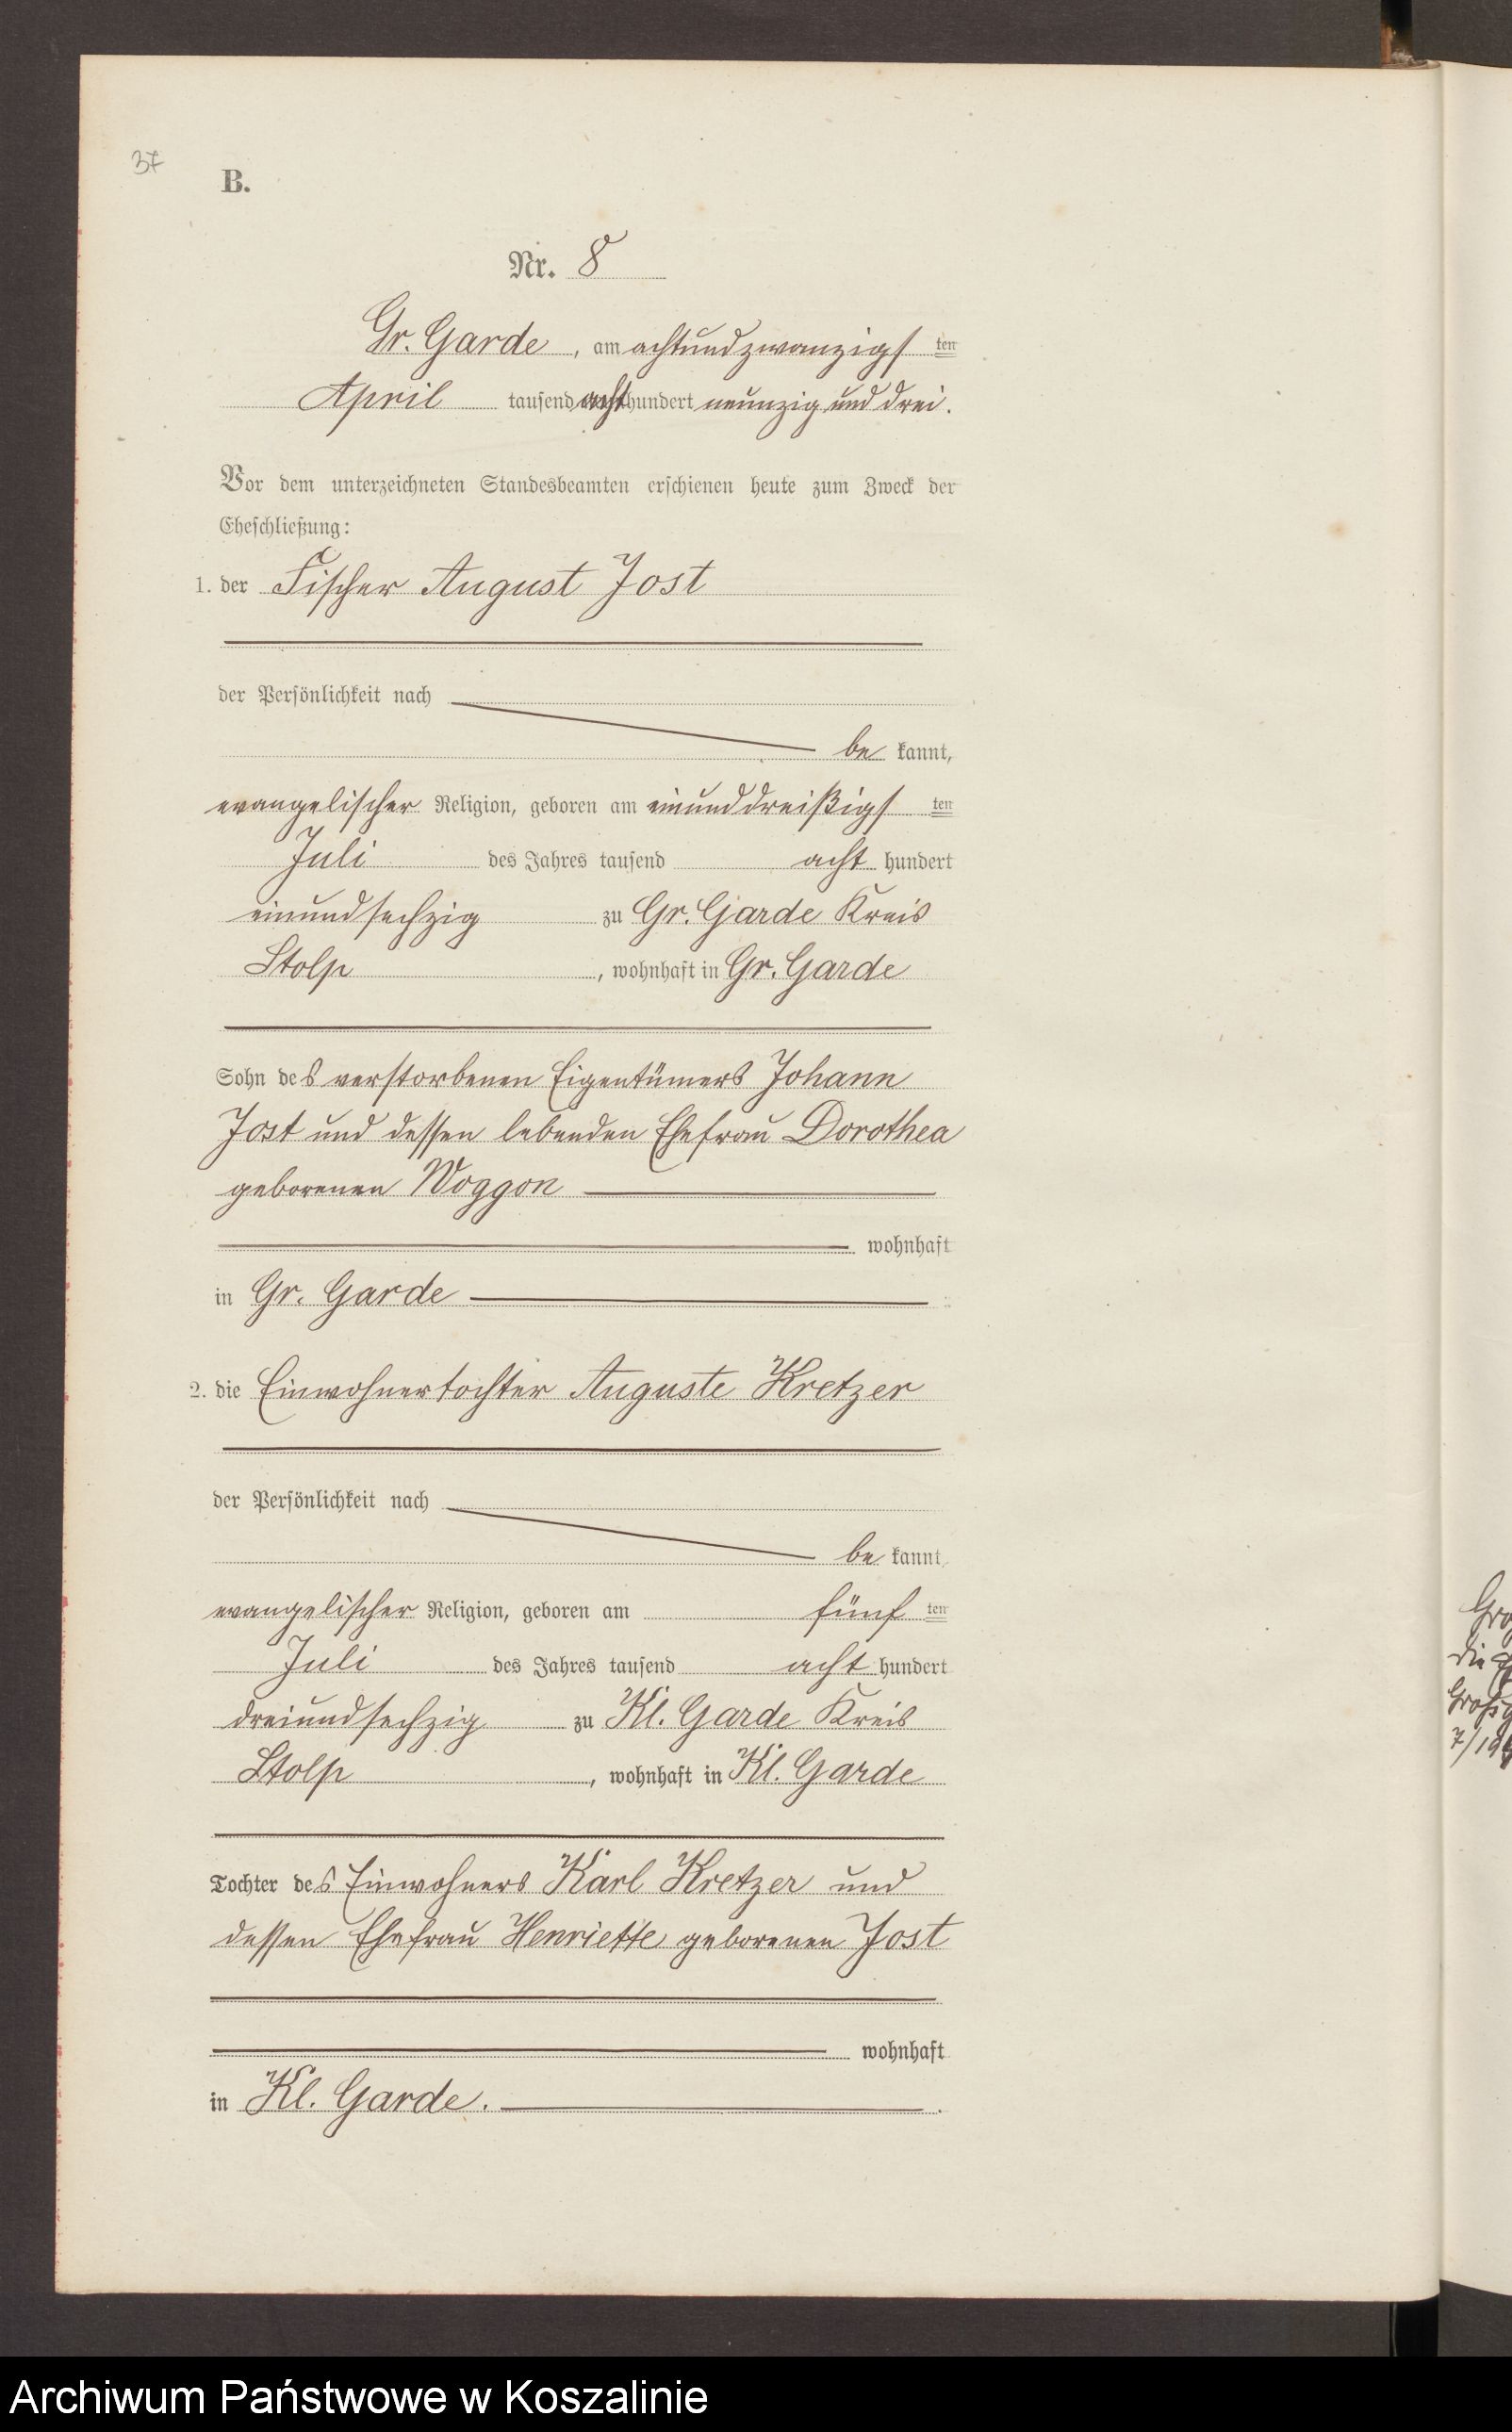 37
B.
Nr. 8
Gr. Garde, am achtundzwanzigsten
April tausend achthundert neunzig und drei.
Vor dem unterzeichneten Standesbeamten erschienen heute zum Zweck der
Eheschließung:
1. der Fischer August Jost
der Persönlichkeit nach
be kannt,
evangelischer Religion, geboren am einunddreißigsten
Juli des Jahres tausend acht hundert
einundsechzig zu Gr. Garde Kreis
Stolp, wohnhaft in Gr. Garde
Sohn des verstorbenen Eigentümers Johann
Jost und dessen lebenden Ehefrau Dorothea
geborenen Woggon
wohnhaft
in Gr. Garde
2. die Einwohnertochter Auguste Kretzer
der Persönlichkeit nach
be kannt,
evangelischer Religion, geboren am fünften
Juli des Jahres tausend acht hundert
dreiundsechzig zu Kl. Garde Kreis
Stolp, wohnhaft in Kl. Garde
Tochter des Einwohners Karl Kretzer und
dessen Ehefrau Henriette geborenen Jost
wohnhaft
in Kl. Garde.
Archiwum Państwowe w Koszalinie